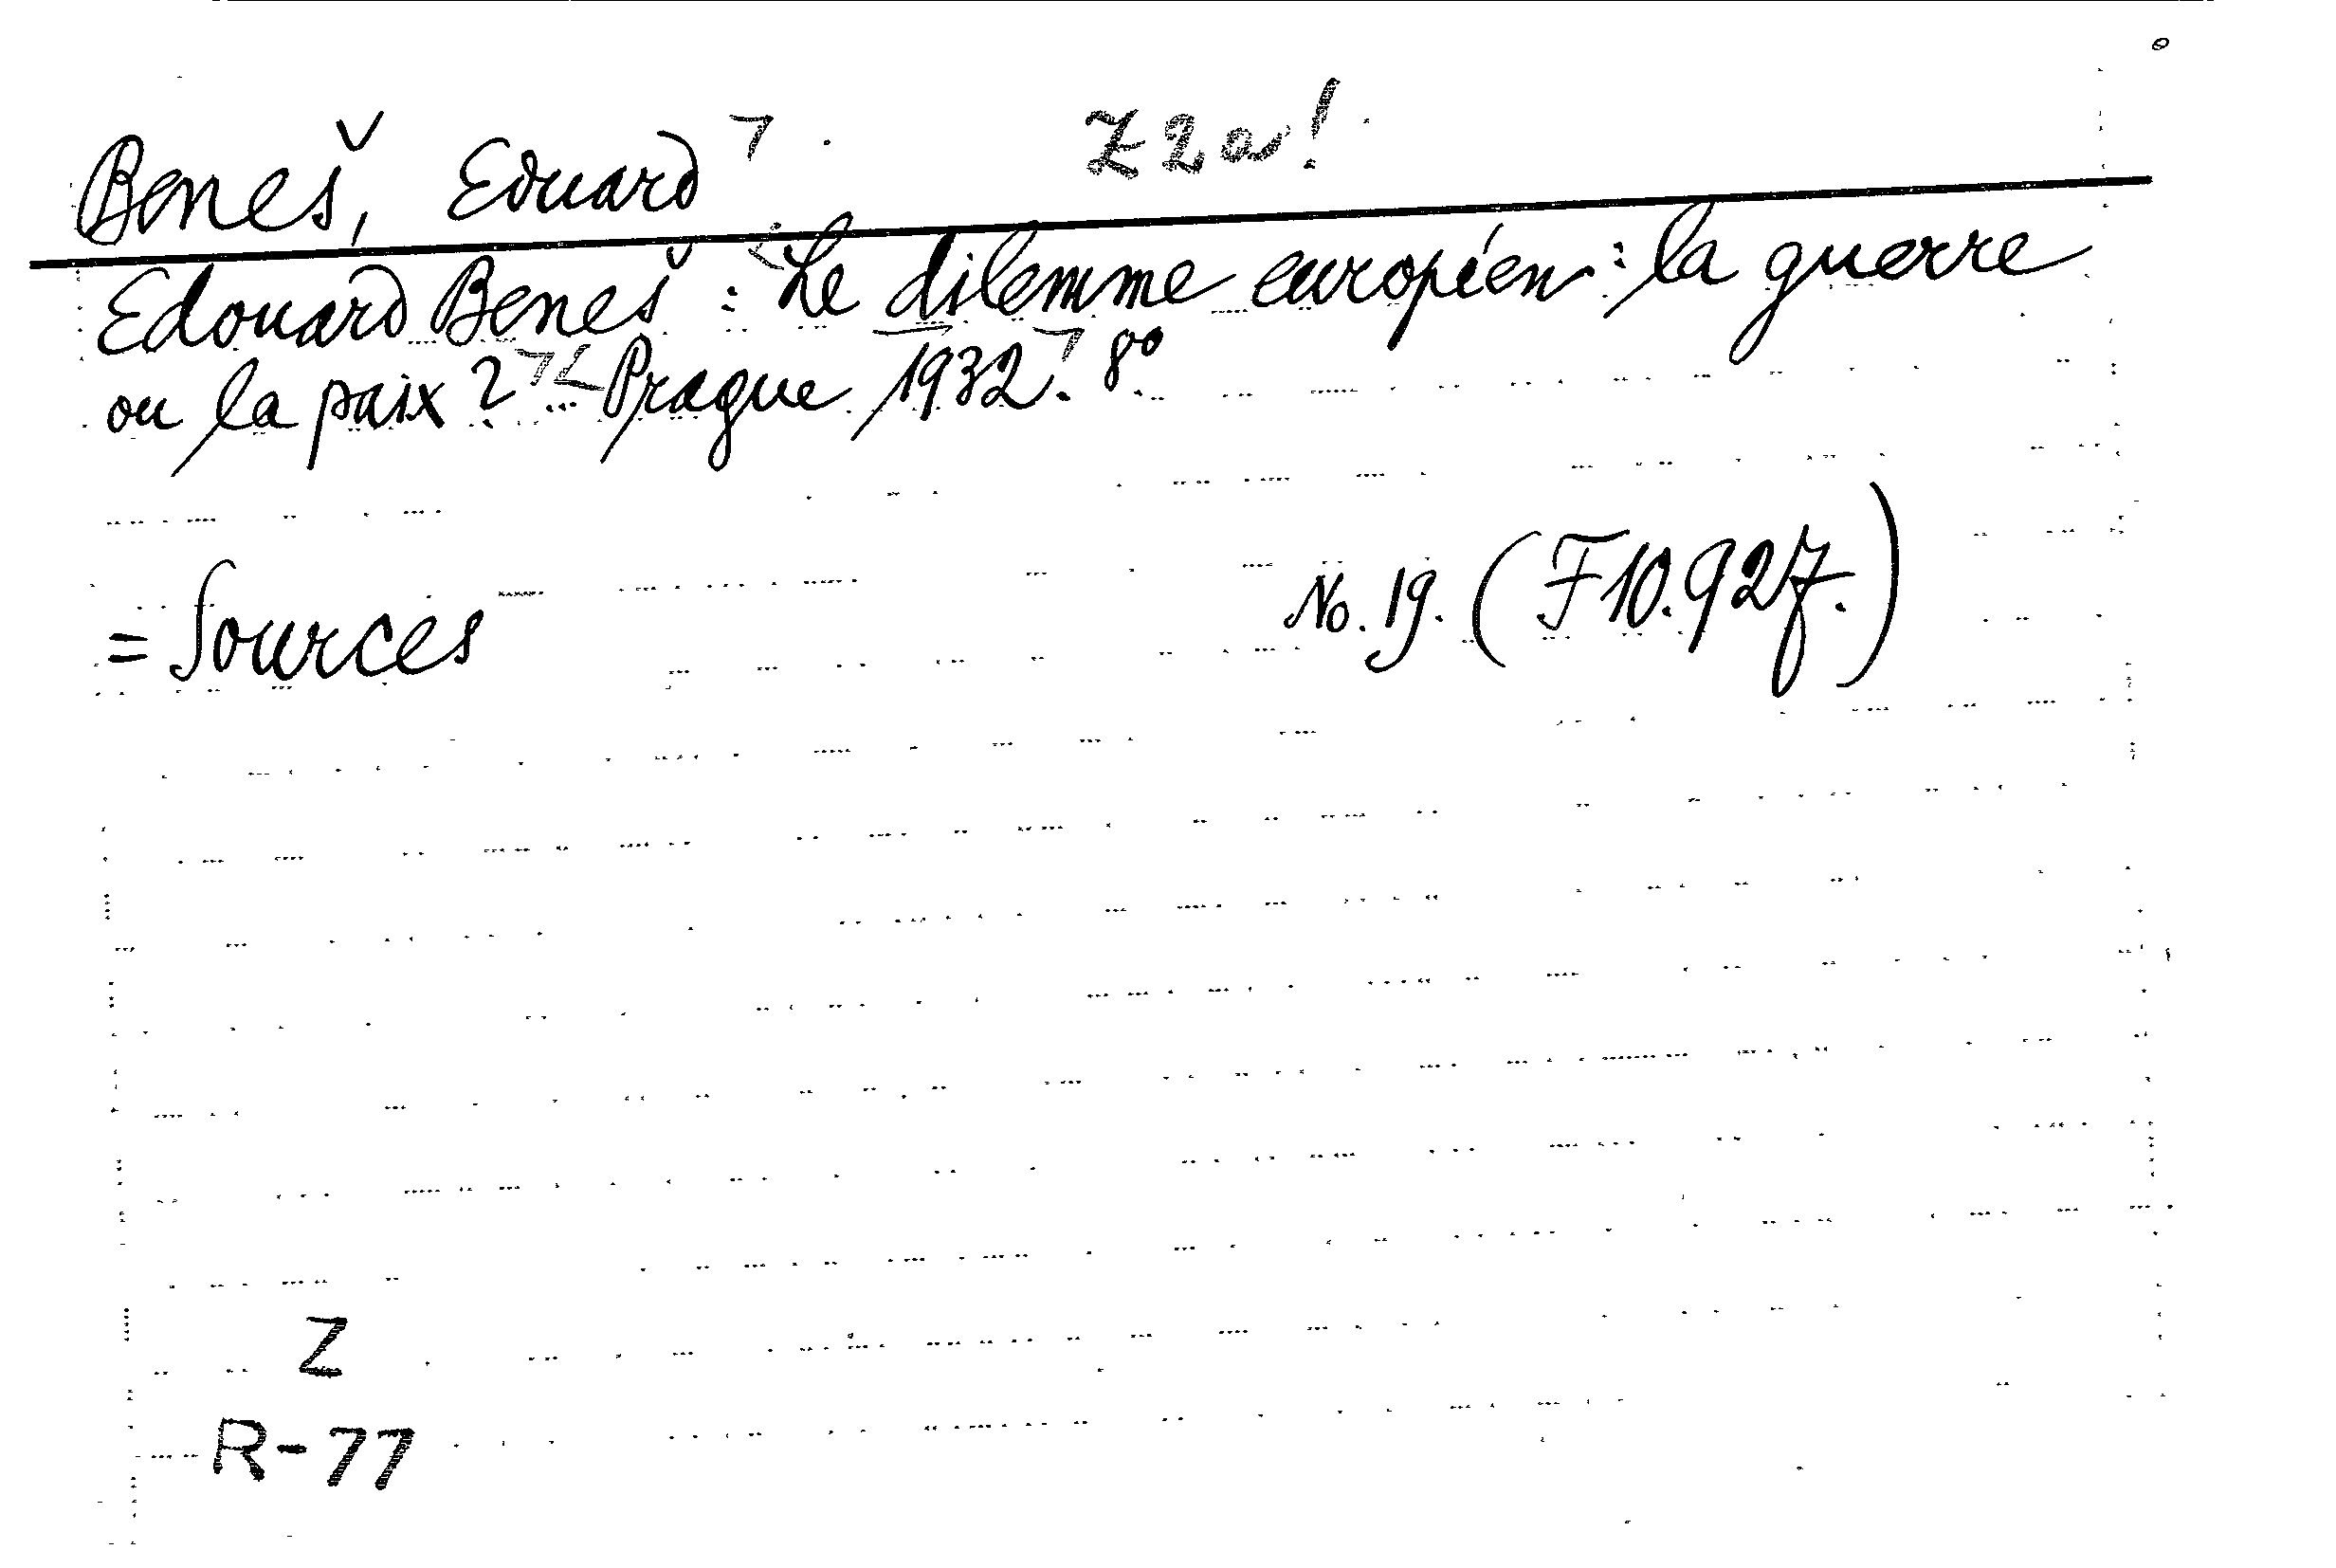 Beneš, Eduard Z2a!
Edouard Beneš: Le dilemme européen: la guerre
ou la paix? Prague 1932. 8°
= Sources No. 19. (F10.927.)
Z
R-77